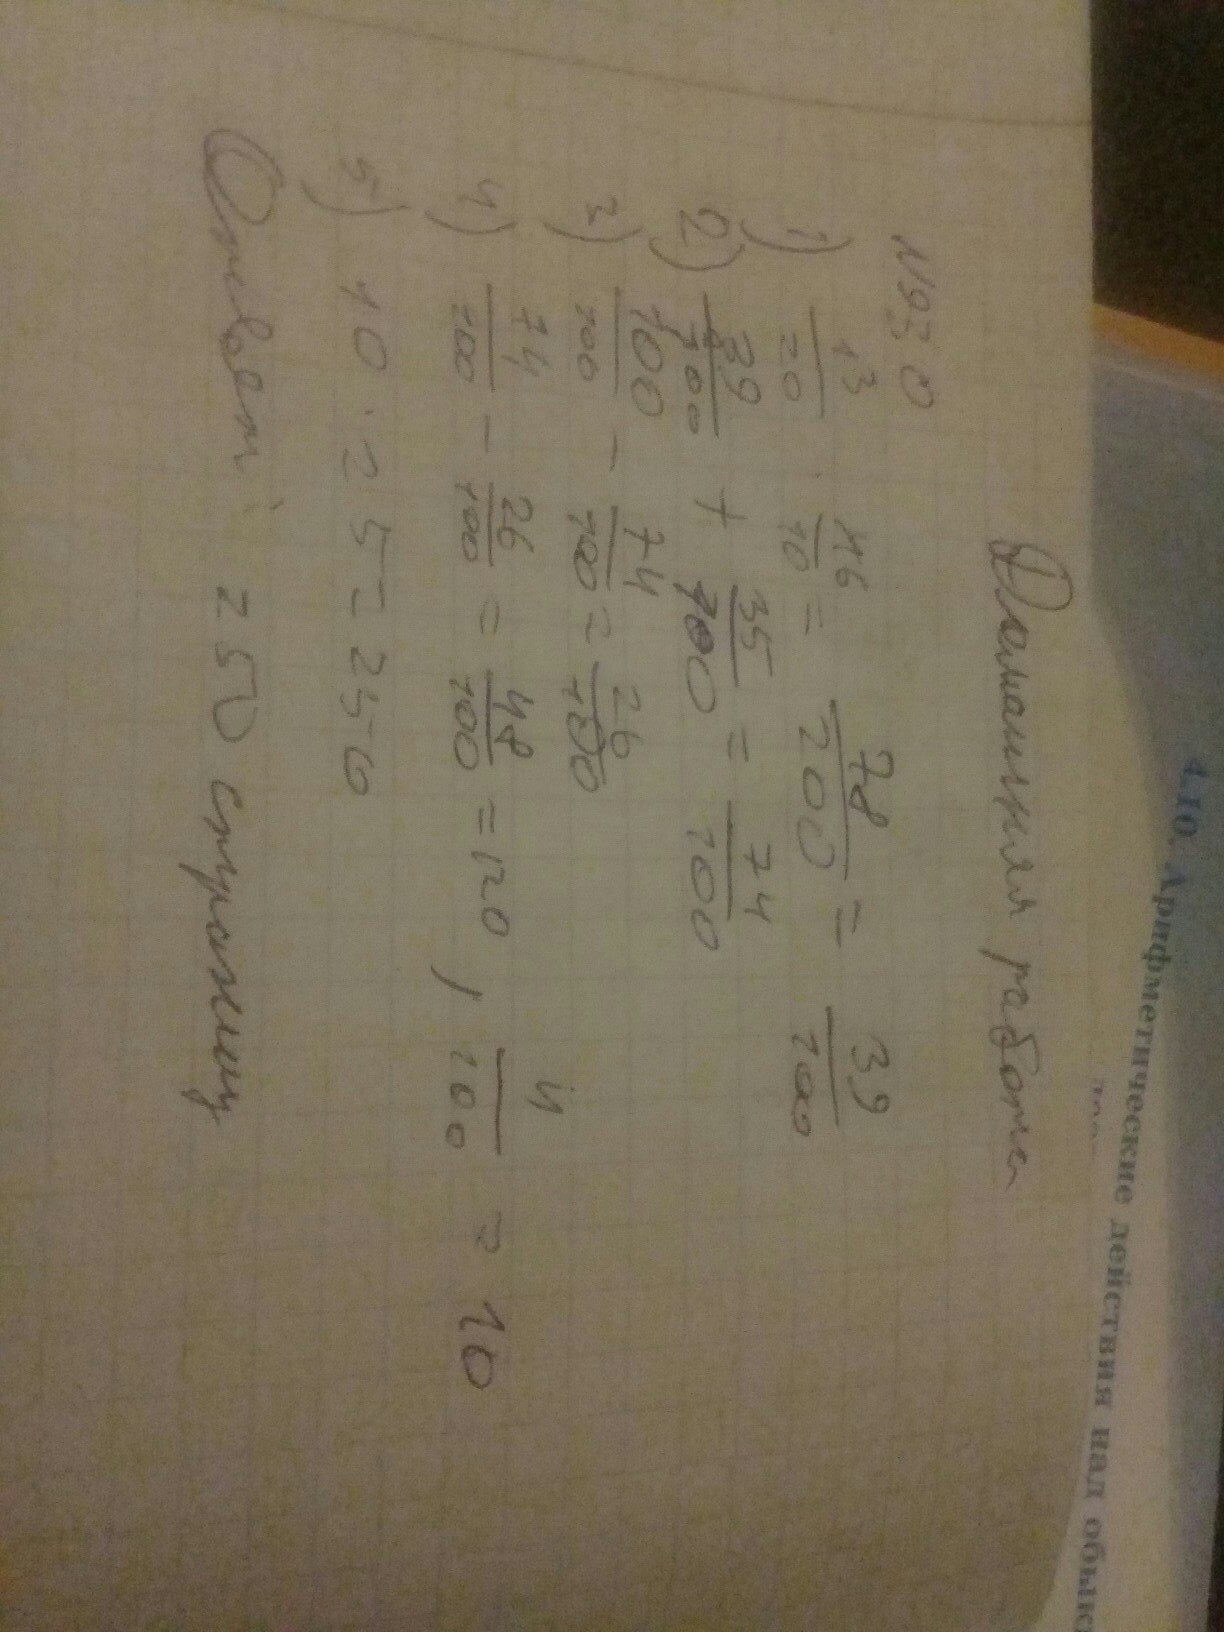 4.10. Арифметические действия над обыкн
Домашняя работа
N930
1) 13/20 · 6/10 = 78/200 = 39/100
2) 39/100 + 35/100 = 74/100
3) 100/100 - 74/100 = 26/100
4) 74/100 - 26/100 = 48/100 = 120, 4/100 = 10
5) 10 · 25 = 250
Ответ: 250 страниц